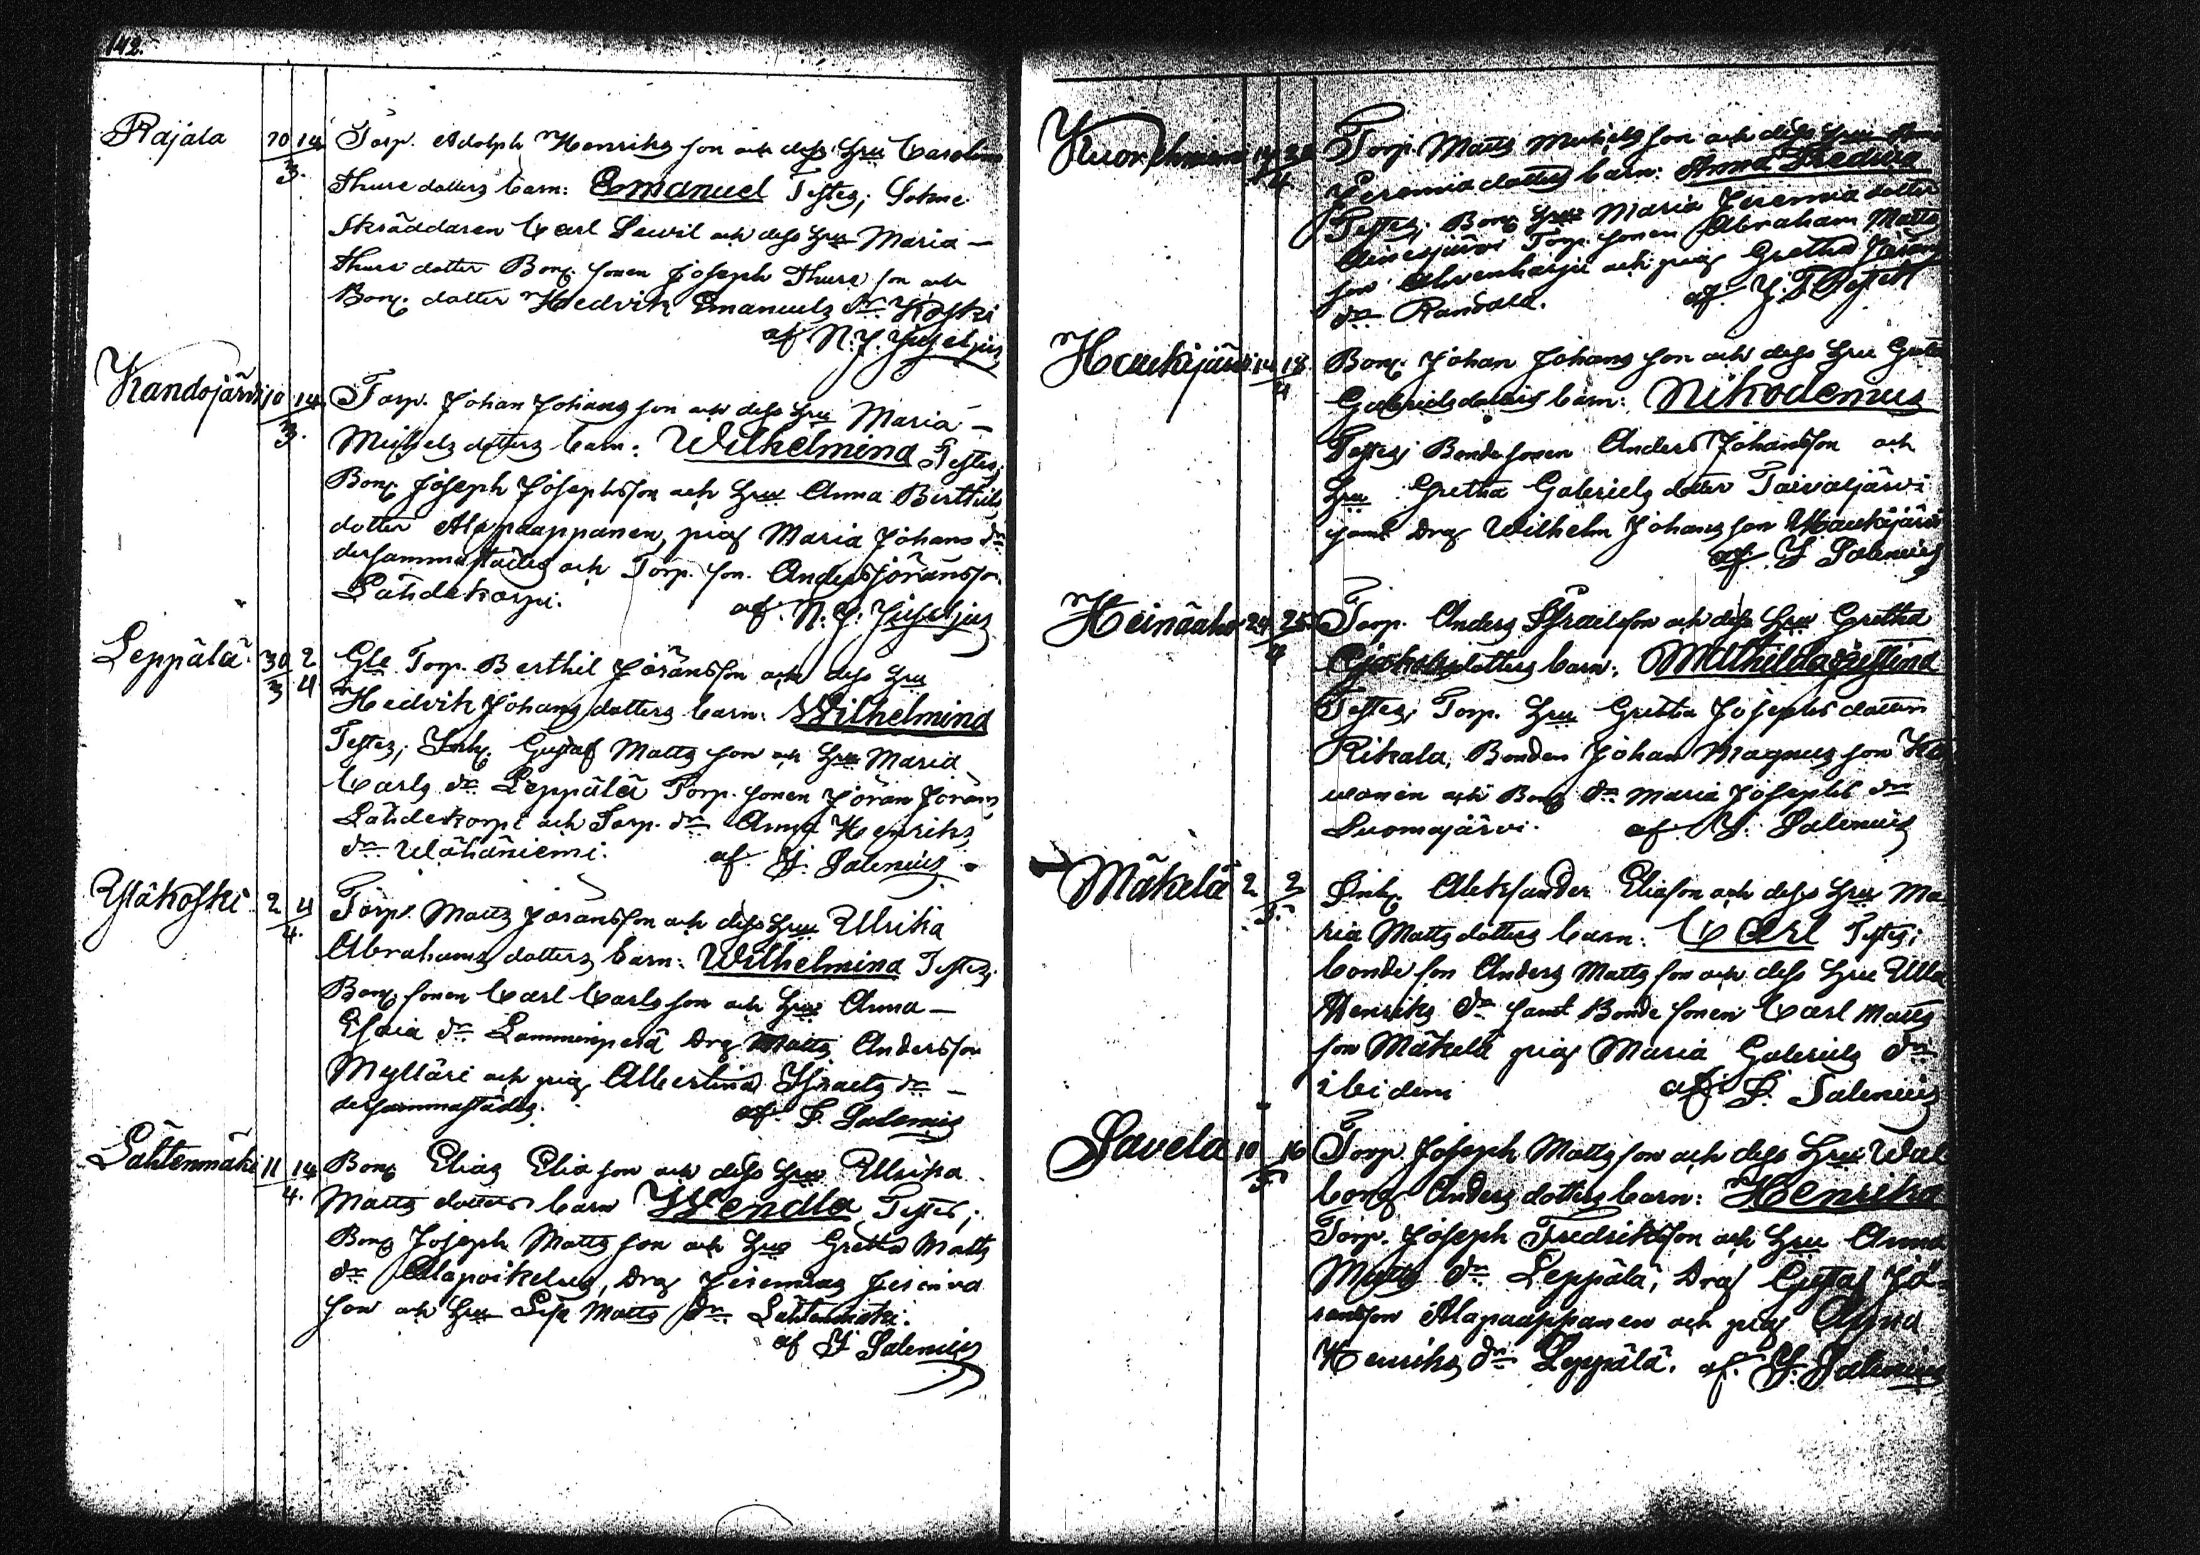 142.
Rajala 10 14/3. Torp. Adolph Henriks son och dess Hru Carolina
Thure dotters barn: Emanuel Testes; Sokne
Skräddaren Carl Lewil och dess Hru Maria –
Thure dotter Bon. sonen Joseph Thure son och
Bon. dotter Hedvik Emanuels dr. Koski
af N. J.
Kandojärvi 10 14/3. Torp. Johan Johans son och dess Hru Maria –
Michels dotters barn: Wilhelmina Testes;
Bon. Joseph Josephsson och Hru Anna Berthils
dotter Alapaappanen, pig. Maria Johans dr
dersammastädes och Torp. son. Anders Jöransson
Lähdekorpi. af. N. J.
Leppälä 30/3 2/4 Gle Torp. Berthil Jöransson och dess Hru
Hedvik Johans dotters barn: Wilhelmina
Testes; Inh. Gustaf Matts son och Hru Maria
Carls dr. Leppälä Torp. sonen Jöran Jörans
Lähdekorpi och Torp. dr Anna Henriks
dr. Wähäniemi. af. F. Salenius
Yläkoski 2 4/4. Torp. Matts Jöransson och dess Hru Ulrika
Abrahams dotters barn: Wilhelmina Testes;
Bon. sonen Carl Carls son och Hru Anna –
Esaia dr. Lamminperä Drg Matts Andersson
Mylläri och pig. Albertina Israels dr –
dersammastädes. af. F. Salenius
Lähtenmäki 11 14/4. Bon. Elias Elia son och dess Hru Ulrika
Matts dotters barn Wendla Testes;
Bon. Joseph Matts son och Hru Gretha Matts
dr Alapoikelus, Drg. Jeremias Jeremia
son och Hru Lisa Matts dr Lähtenmäki.
af F Salenius
Torp. Matts Michels son och dess Hru
Jeremia dotters barn: Anna Fredrica
Testes; Bon. Hru Maria Jeremia dotter
Torp. sonen Abraham Matts
son Ahvenharju och pig. Gretha
dr. Randala. af
Haukijärvi 14 18/4 Bon. Johan Johans son och dess Hru
Gabriels dotters barn: Nikodemus
Testes; Bonde sonen Anders Johansson och
Hru Gretha Gabriels dotter Taivaljärvi
samt Drg Wilhelm Johans son Haukijärvi
af. F Salenius
Heinäaho 24 25/4 Torp. Anders Israelsson och dess Hru Gretha
dotters barn: Mathilda Justina
Testes; Torp. Hru Gretha Josephs dotter
Rikala, Bonden Johan Magnus son
wonen och Bon. dr. Maria Josephs dr
Luomajärvi. af. F. Salenius
Mäkelä 2 2/5. Inh. Aleksander Eliason och dess Hru Ma
ria Matts dotters barn: Carl Testes;
bonde son Anders Matts son och dess Hru Ulla
Henriks dr samt Bonde sonen Carl Matts
son Mäkelä pig. Maria Gabriels dr
ibidem af F. Salenius
Savela 10 16/5 Torp. Joseph Matts son och dess Hru Wal
borg Anders dotters barn: Henrika
Torp. Joseph Fredriksson och Hru Anna
Matts dr. Leppälä, Drg Gustaf Jö-
ransson Alapaappanen och pig. Anna
Henriks dr. Leppälä. af. F. Salenius